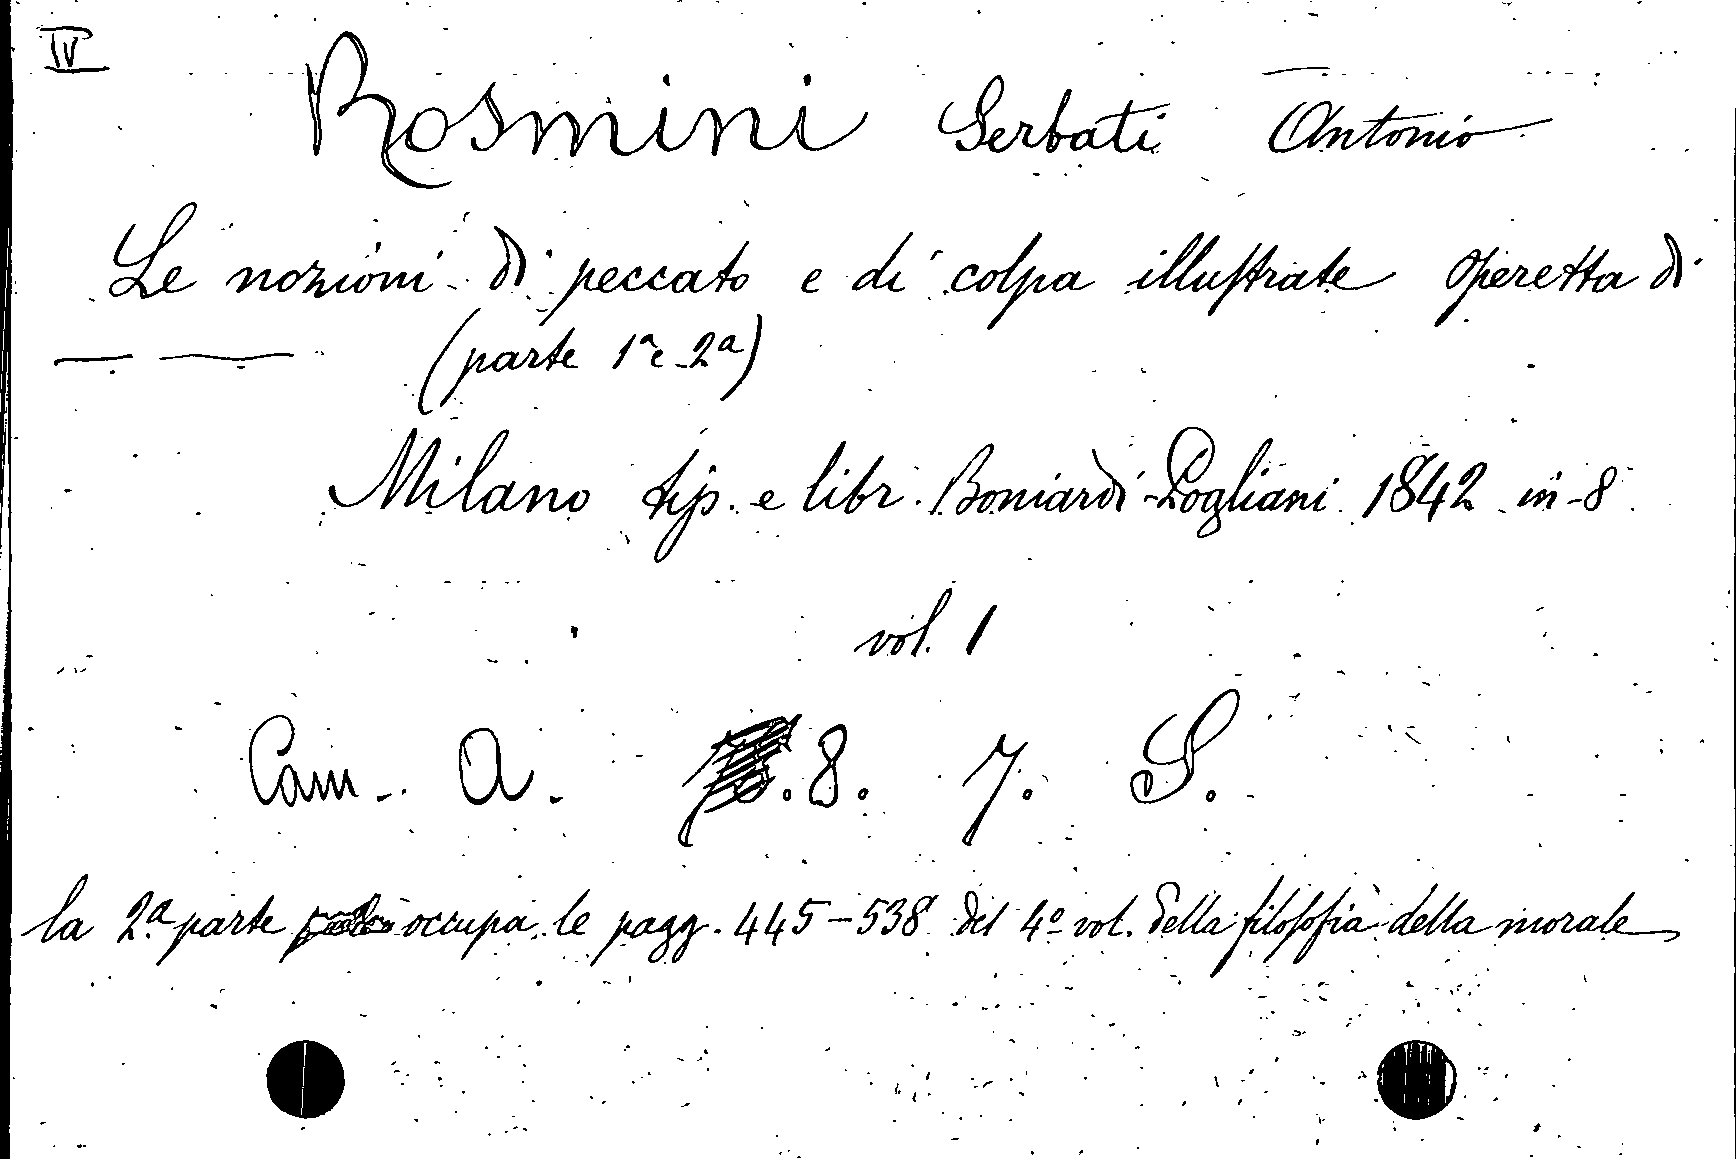 IV
Rosmini Serbati Antonio
Le nozioni di peccato e di colpa illustrate operetta di
— — (parte 1ª e 2ª)
Milano tip. e libr. Boniardi-Pogliani 1842 in-8
vol. 1
Cam. A. 8. 7. S.
la 2ª parte occupa le pagg. 445-538 del 4º vol. della filosofia della morale